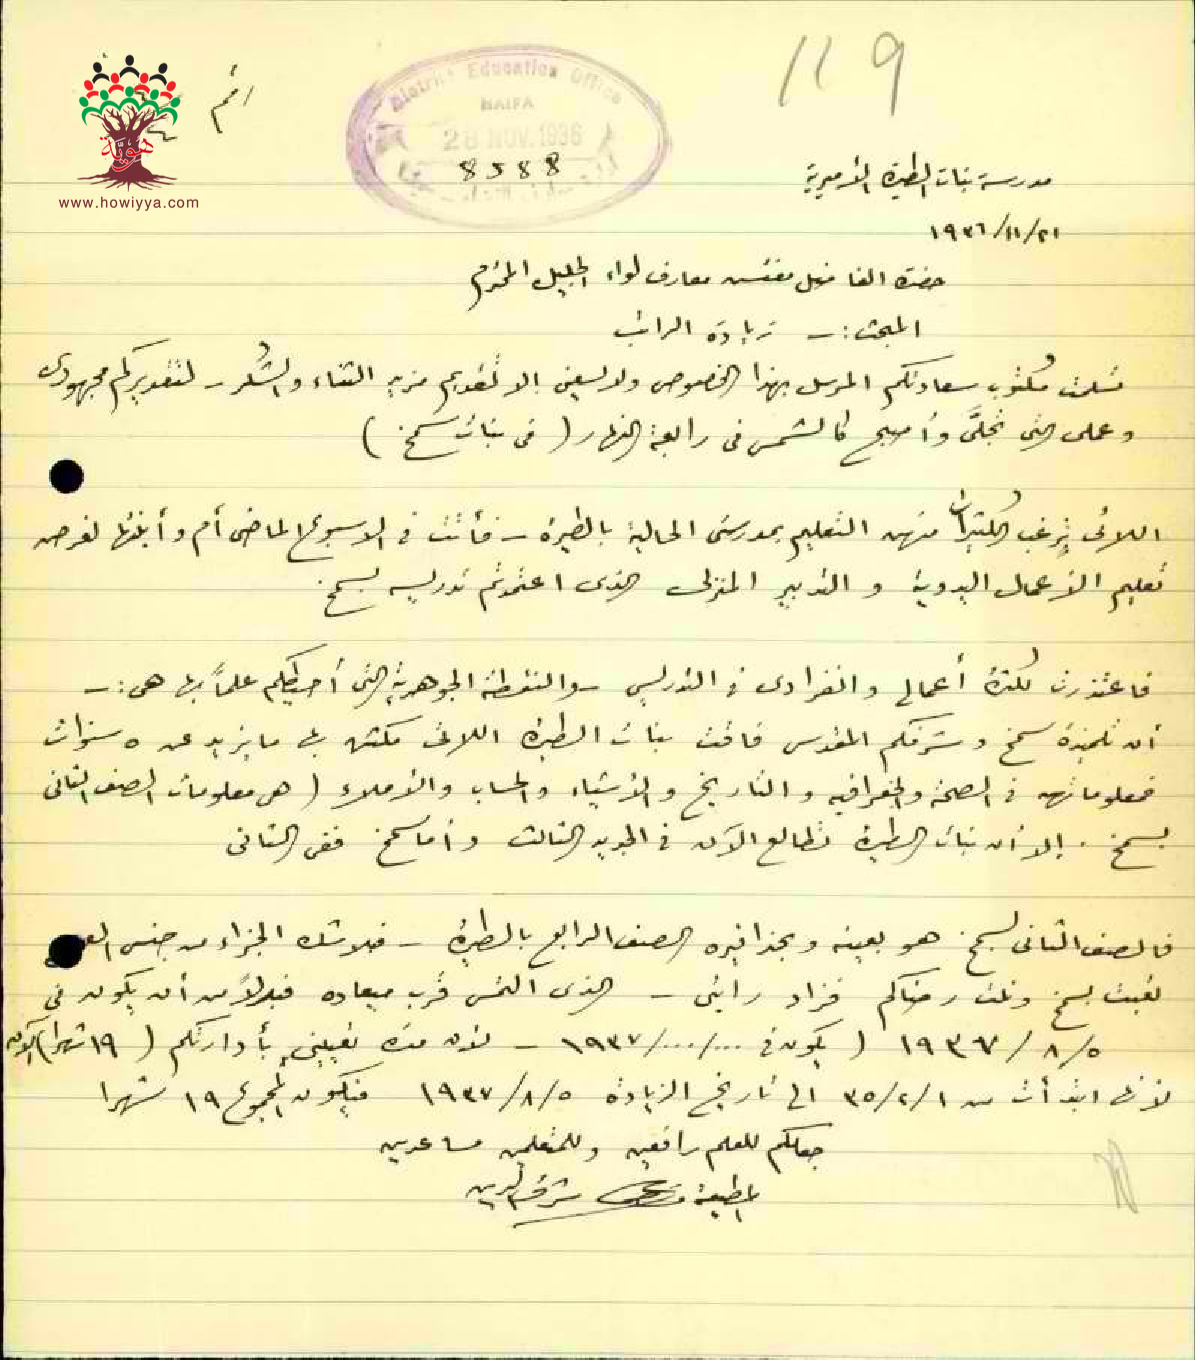 119
District Education Office
HAIFA
28 NOV. 1936
8588
هوية
www.howiyya.com
مدرسة بنات الطيرة الأميرية
٢١/١١/١٩٣٦
حضرة الفاضل مفتش معارف لواء الجليل المحترم
المبحث :- زيادة الراتب
تسلمت مكتوب سعادتكم المرسل بهذا الخصوص ولا يسعني إلا تقديم مزيد الثناء والشكر - لتقديركم مجهودي
وعملي الذي تجلَّى وأصبح كالشمس في رابعة النهار ( في بنات سمخ )
اللائي يرغب الكثيرات منهن التعليم بمدرستي الحالية بالطيرة - فأتت في الاسبوع الماضي أم وأبنتها لغرض
تعليم الأعمال اليدوية و التدبير المنزلي الذي اعتمدتم تدريسه بسمخ.
فاعتذرت لكثرة أعمالي وانفرادي في التدريس - والنقطة الجوهرية التي أحيطكم علماً بها هي :-
أن تلميذة سمخ وشرفكم المقدس فاقت بنات الطيرة اللائي مكثن بها ما يزيد عن ٥ سنوات
فمعلوماتهن في الصحة والجغرافيه والتاريخ والأشياء والحساب والأملاء ( هي معلومات الصف الثاني
بسمخ . إلا أن بنات الطيرة تطالع الآن في الجديد الثالث وأما سمخ ففي الثاني
فالصف الثاني بسمخ هو بعينه وبحذافيره الصف الرابع بالطيرة - فلا شك الجزاء من جنس
تعبت بسمخ ونلت رضاكم فزاد راتبي - الذي التمس قرب ميعاده فبدلاً من أن يكون في
٥/٨/١٩٣٧ ( يكون في .../.../١٩٣٧ - لأن مدة تعييني بأدارتكم ( ١٩ شهرا) الآن
لأنها ابتدأت من ١/٢/٣٥ الى تاريخ الزيادة ٥/٨/١٩٣٧ فيكون المجموع ١٩ شهرا
جعلكم للعلم رافعين وللمتعلمين مساعدين
المطيعة شرف الدين